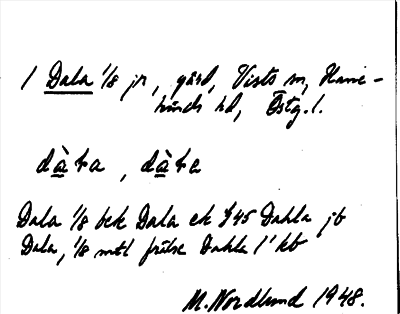 1 Dala 1/8 jr, gård, Vists sn, Hane-
kinds hd, Östg. l.
dàta, dàte
Dala 1/8 bek Dala ek § 45 Dahla jb
Dala, 1/8 mtl frälse Dahla 1' kb
M. Nordlund 1948.